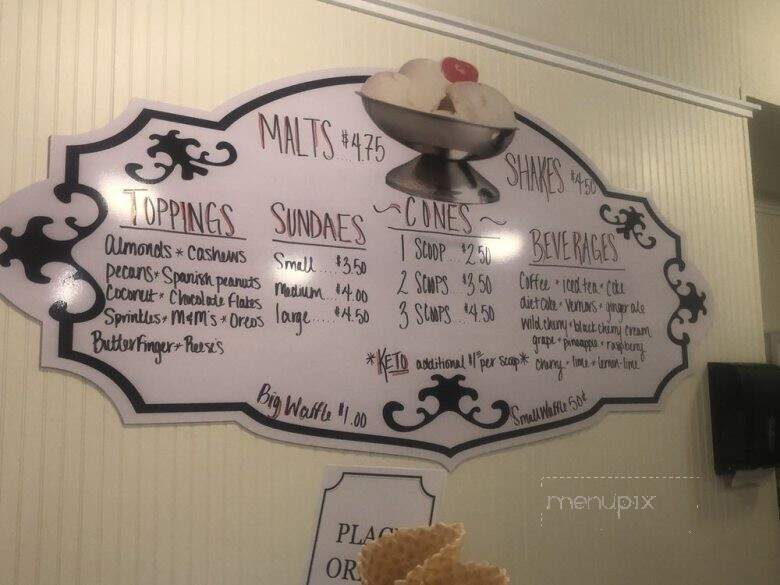 MALTS $4.75
SHAKES $4.50
TOPPINGS
Almonds * Cashews
Pecans * Spanish peanuts
Coconut * Chocolate Flakes
Sprinkles * M&M's * Oreos
Butter Finger * Reese's
SUNDAES
Small.... $3.50
Medium.... $4.00
large.... $4.50
~CONES~
1 SCOOP... $2.50
2 SCOOPS $3.50
3 SCOOPS $4.50
*KETO additional $1 per scoop*
BEVERAGES
Coffee * iced tea * coke
diet coke * Vernors * ginger ale
wild cherry * black cherry cream
grape * pineapple * raspberry
cherry * lime * lemon-lime
Big Waffle $1.00
Small Waffle 50¢
menupix